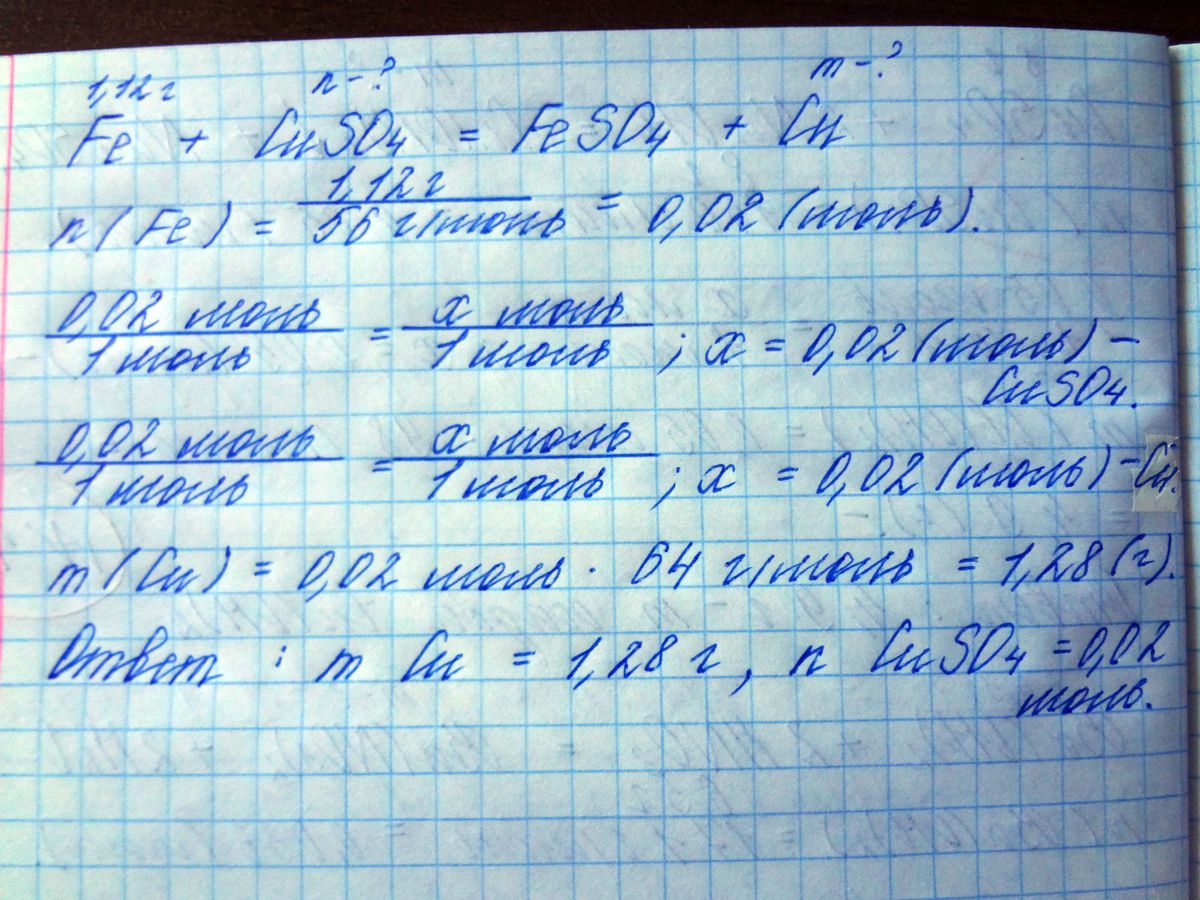 1,12 г n - ? m - ?
Fe + CuSO4 = FeSO4 + Cu
n (Fe) = 1,12 г / 56 г/моль = 0,02 (моль).
0,02 моль / 1 моль = x моль / 1 моль ; x = 0,02 (моль) –
CuSO4.
0,02 моль / 1 моль = x моль / 1 моль ; x = 0,02 (моль) – Cu.
m (Cu) = 0,02 моль · 64 г/моль = 1,28 (г).
Ответ : m Cu = 1,28 г, n CuSO4 = 0,02
моль.